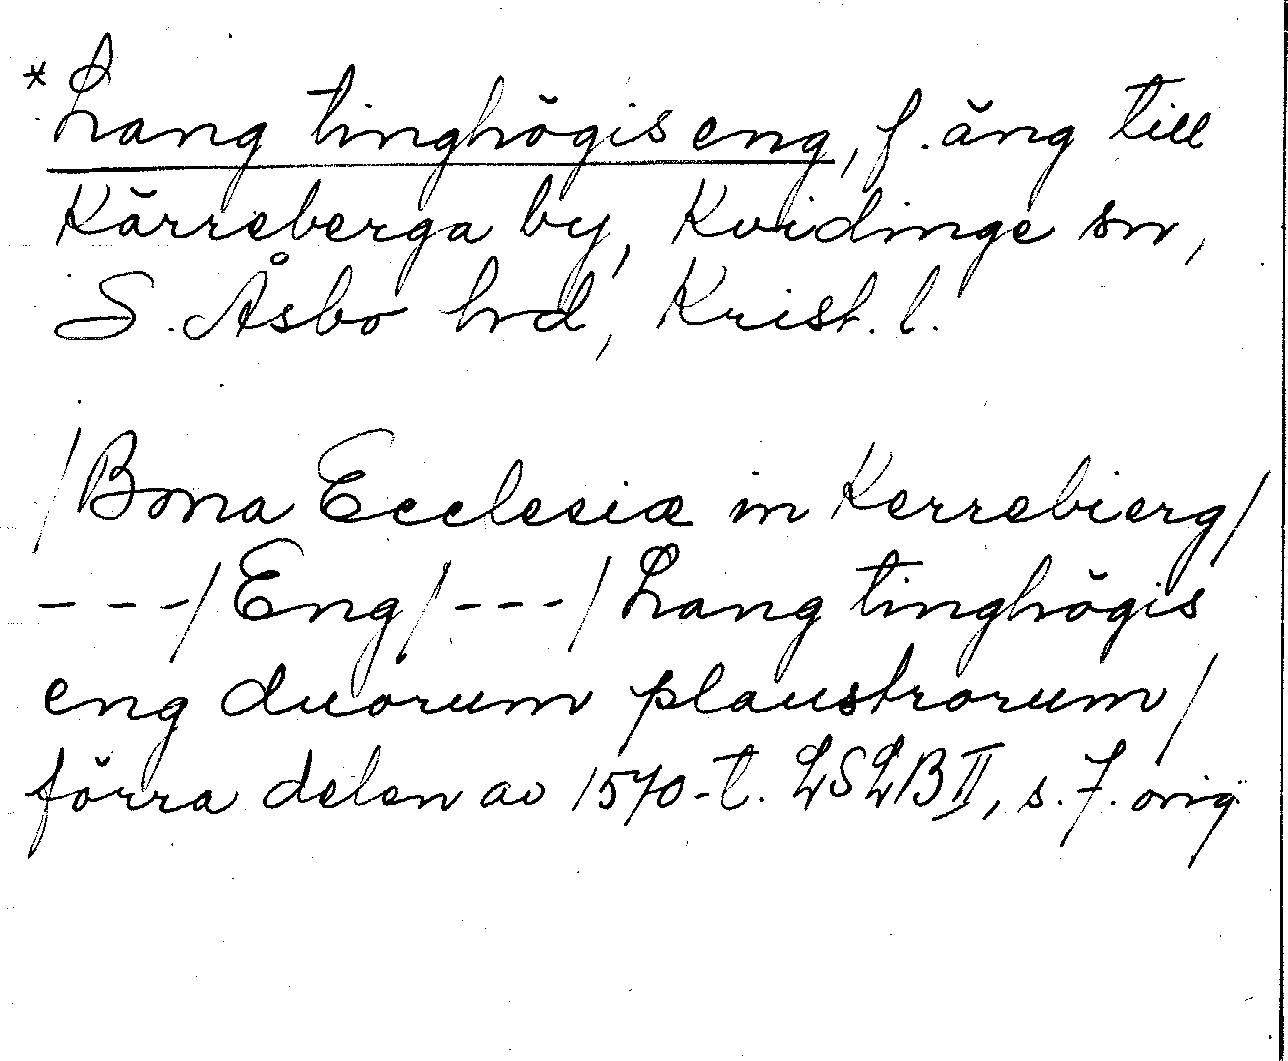 *Lang tinghögis eng, f. äng till
Kärreberga by, Kvidinge sn,
S. Åsbo hd, Krist. l.
/Bona Ecclesiæ in Kerrebierg/
---/Eng/---/Lang tinghögis
eng duorum plaustrorum/
förra delen av 1570-t. LSLB II, s. 7. orig.